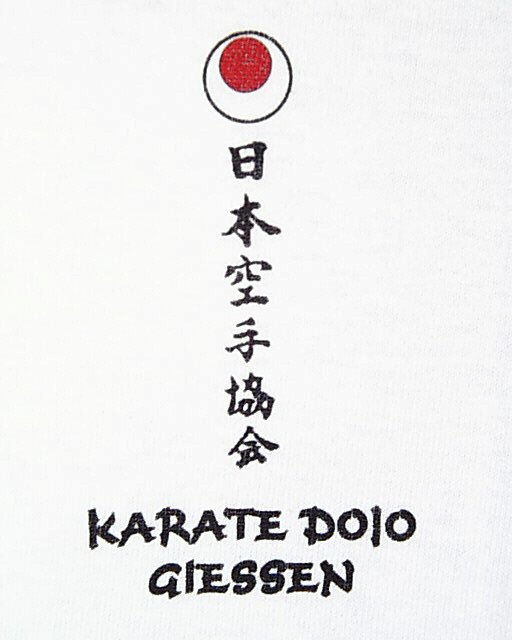 日本空手協会
KARATE DOJO
GIESSEN